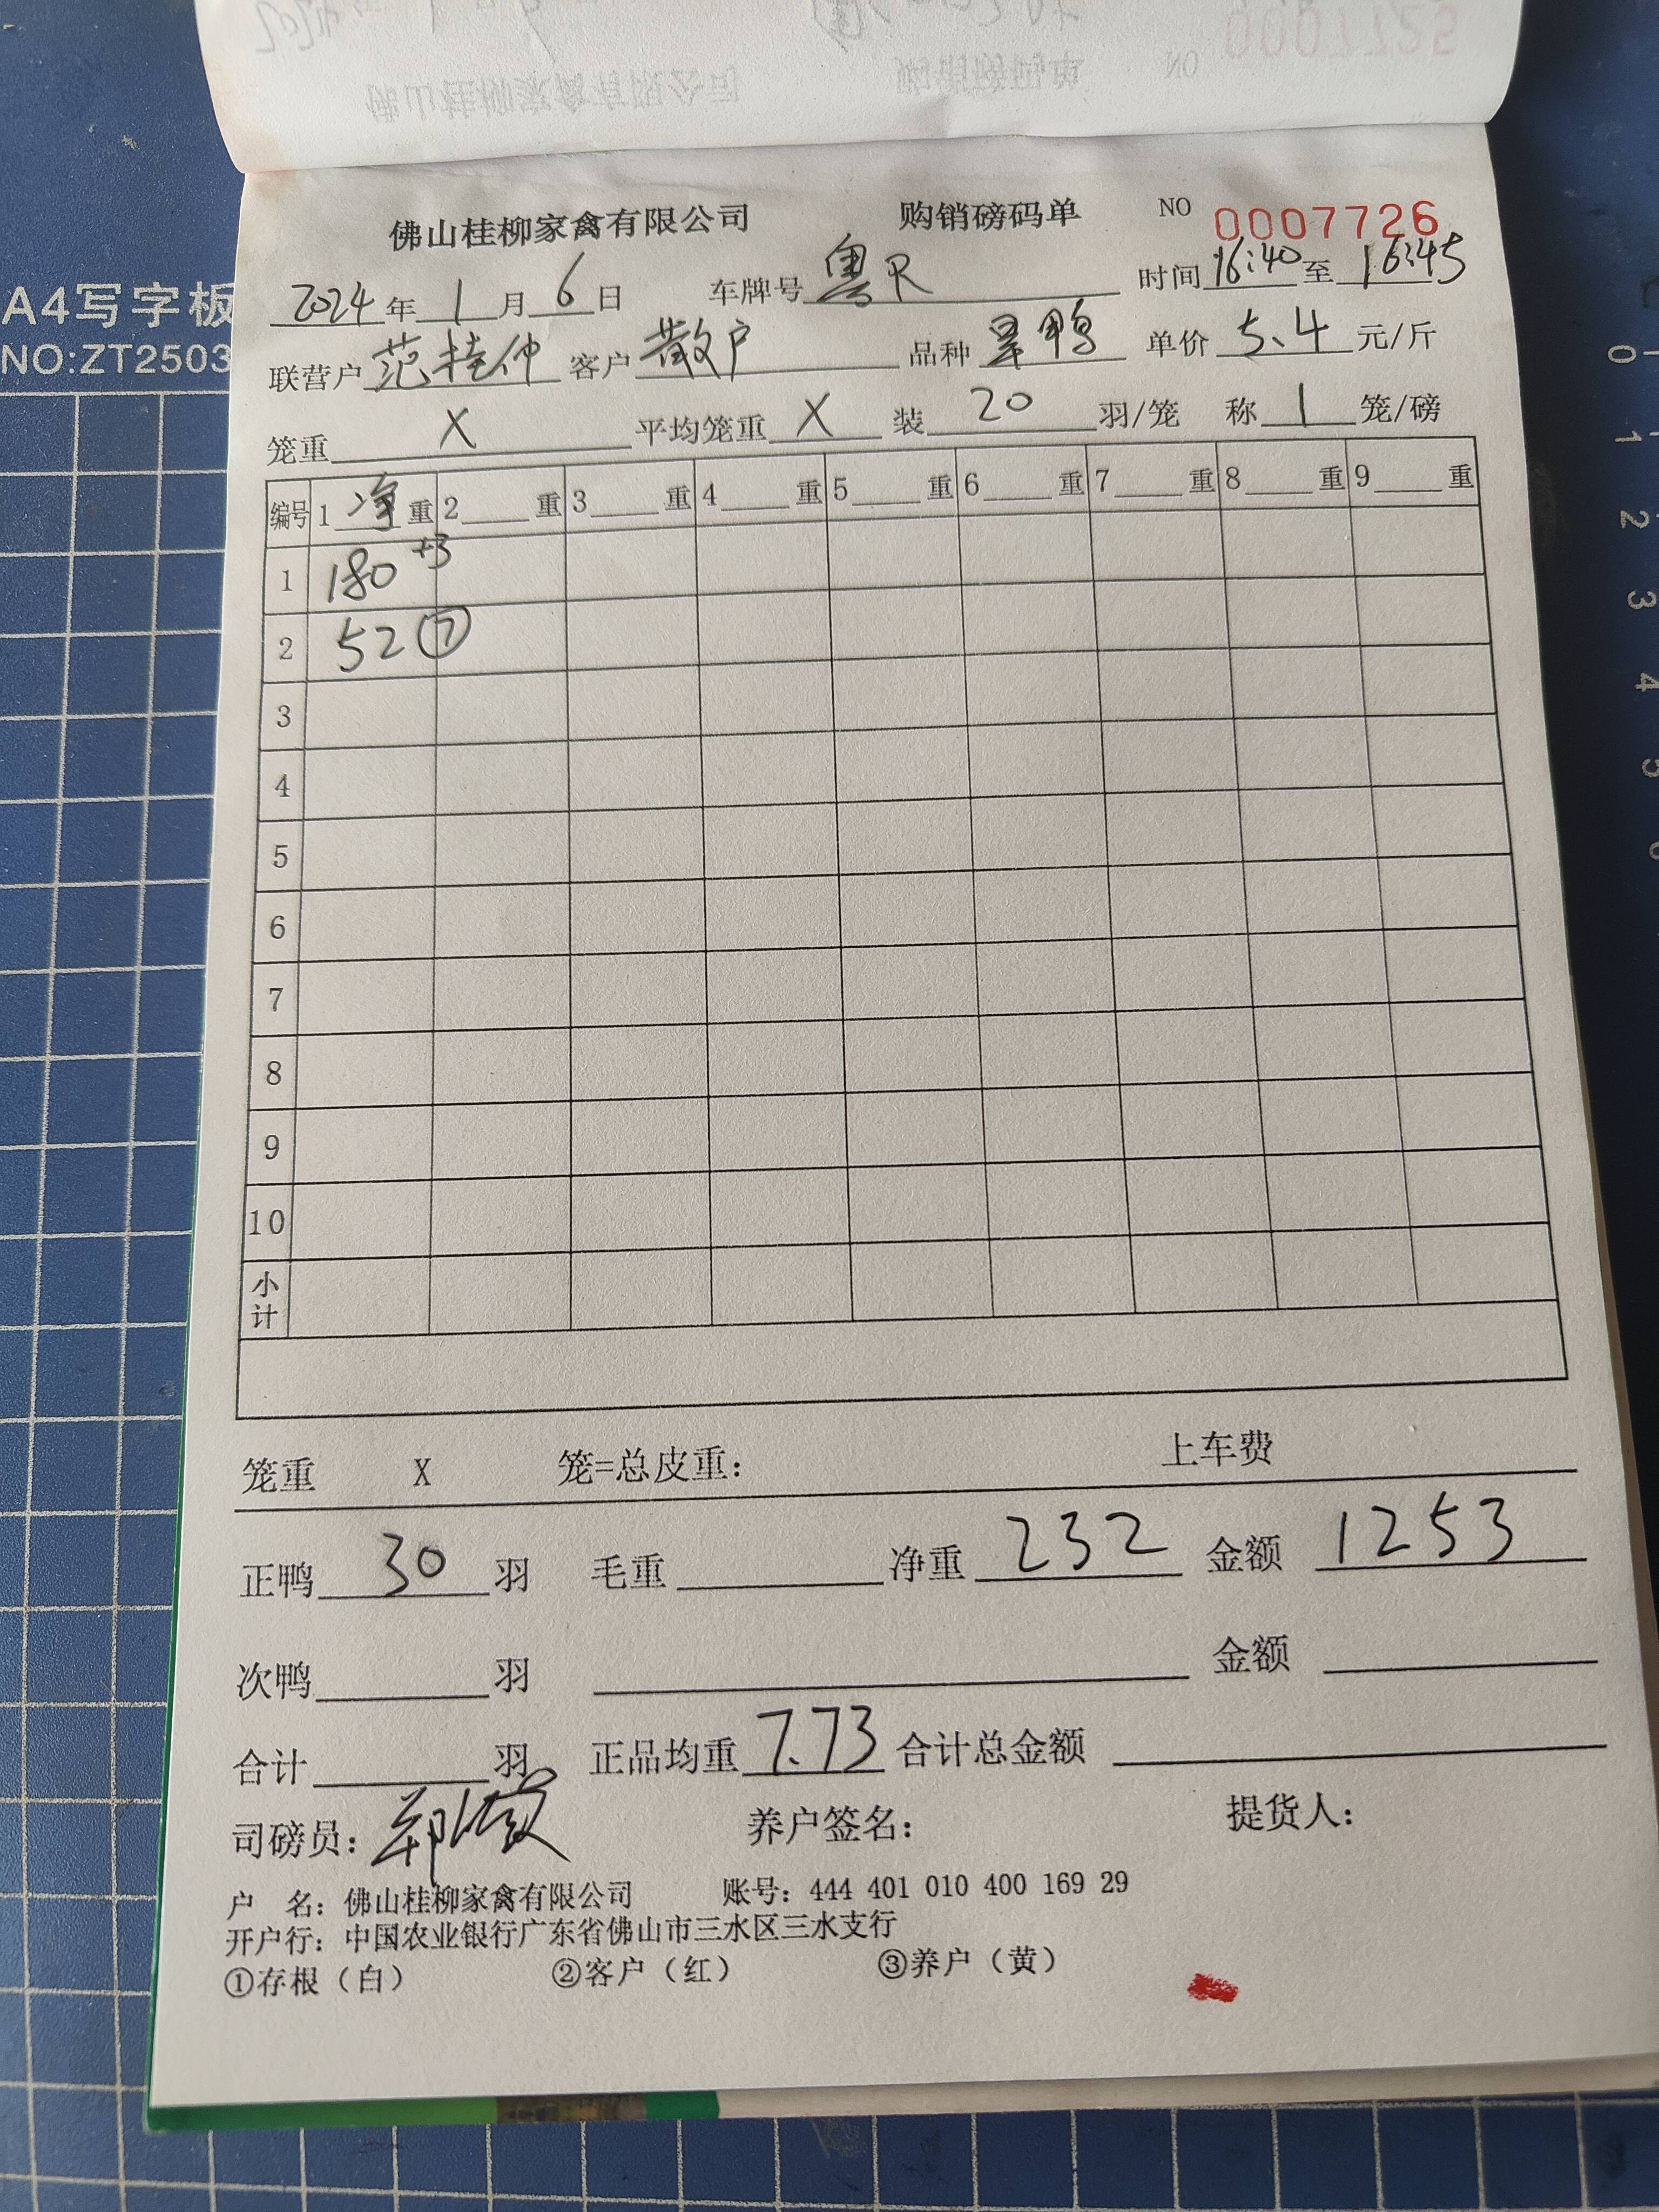 佛山桂柳家禽有限公司 购销磅码单 NO 0007726
2024年1月6日 车牌号 粤R 时间 16:40 至 16:45
A4写字板
NO:ZT2503
联营户 范桂仲 客户 散户 品种 旱鸭 单价 5.4 元/斤
笼重 X 平均笼重 X 装 20 羽/笼 称 1 笼/磅
编号 1 净 重 2 重 3 重 4 重 5 重 6 重 7 重 8 重 9 重
1 180 +3
2 52 ⑦
3
4
5
6
7
8
9
10
小计
笼重 X 笼=总皮重: 上车费
正鸭 30 羽 毛重 净重 232 金额 1253
次鸭 羽 金额
合计 羽 正品均重 7.73 合计总金额
司磅员: 养户签名: 提货人:
户 名: 佛山桂柳家禽有限公司 账号: 444 401 010 400 169 29
开户行: 中国农业银行广东省佛山市三水区三水支行
①存根（白） ②客户（红） ③养户（黄）
0
1
2
3
4
5
6